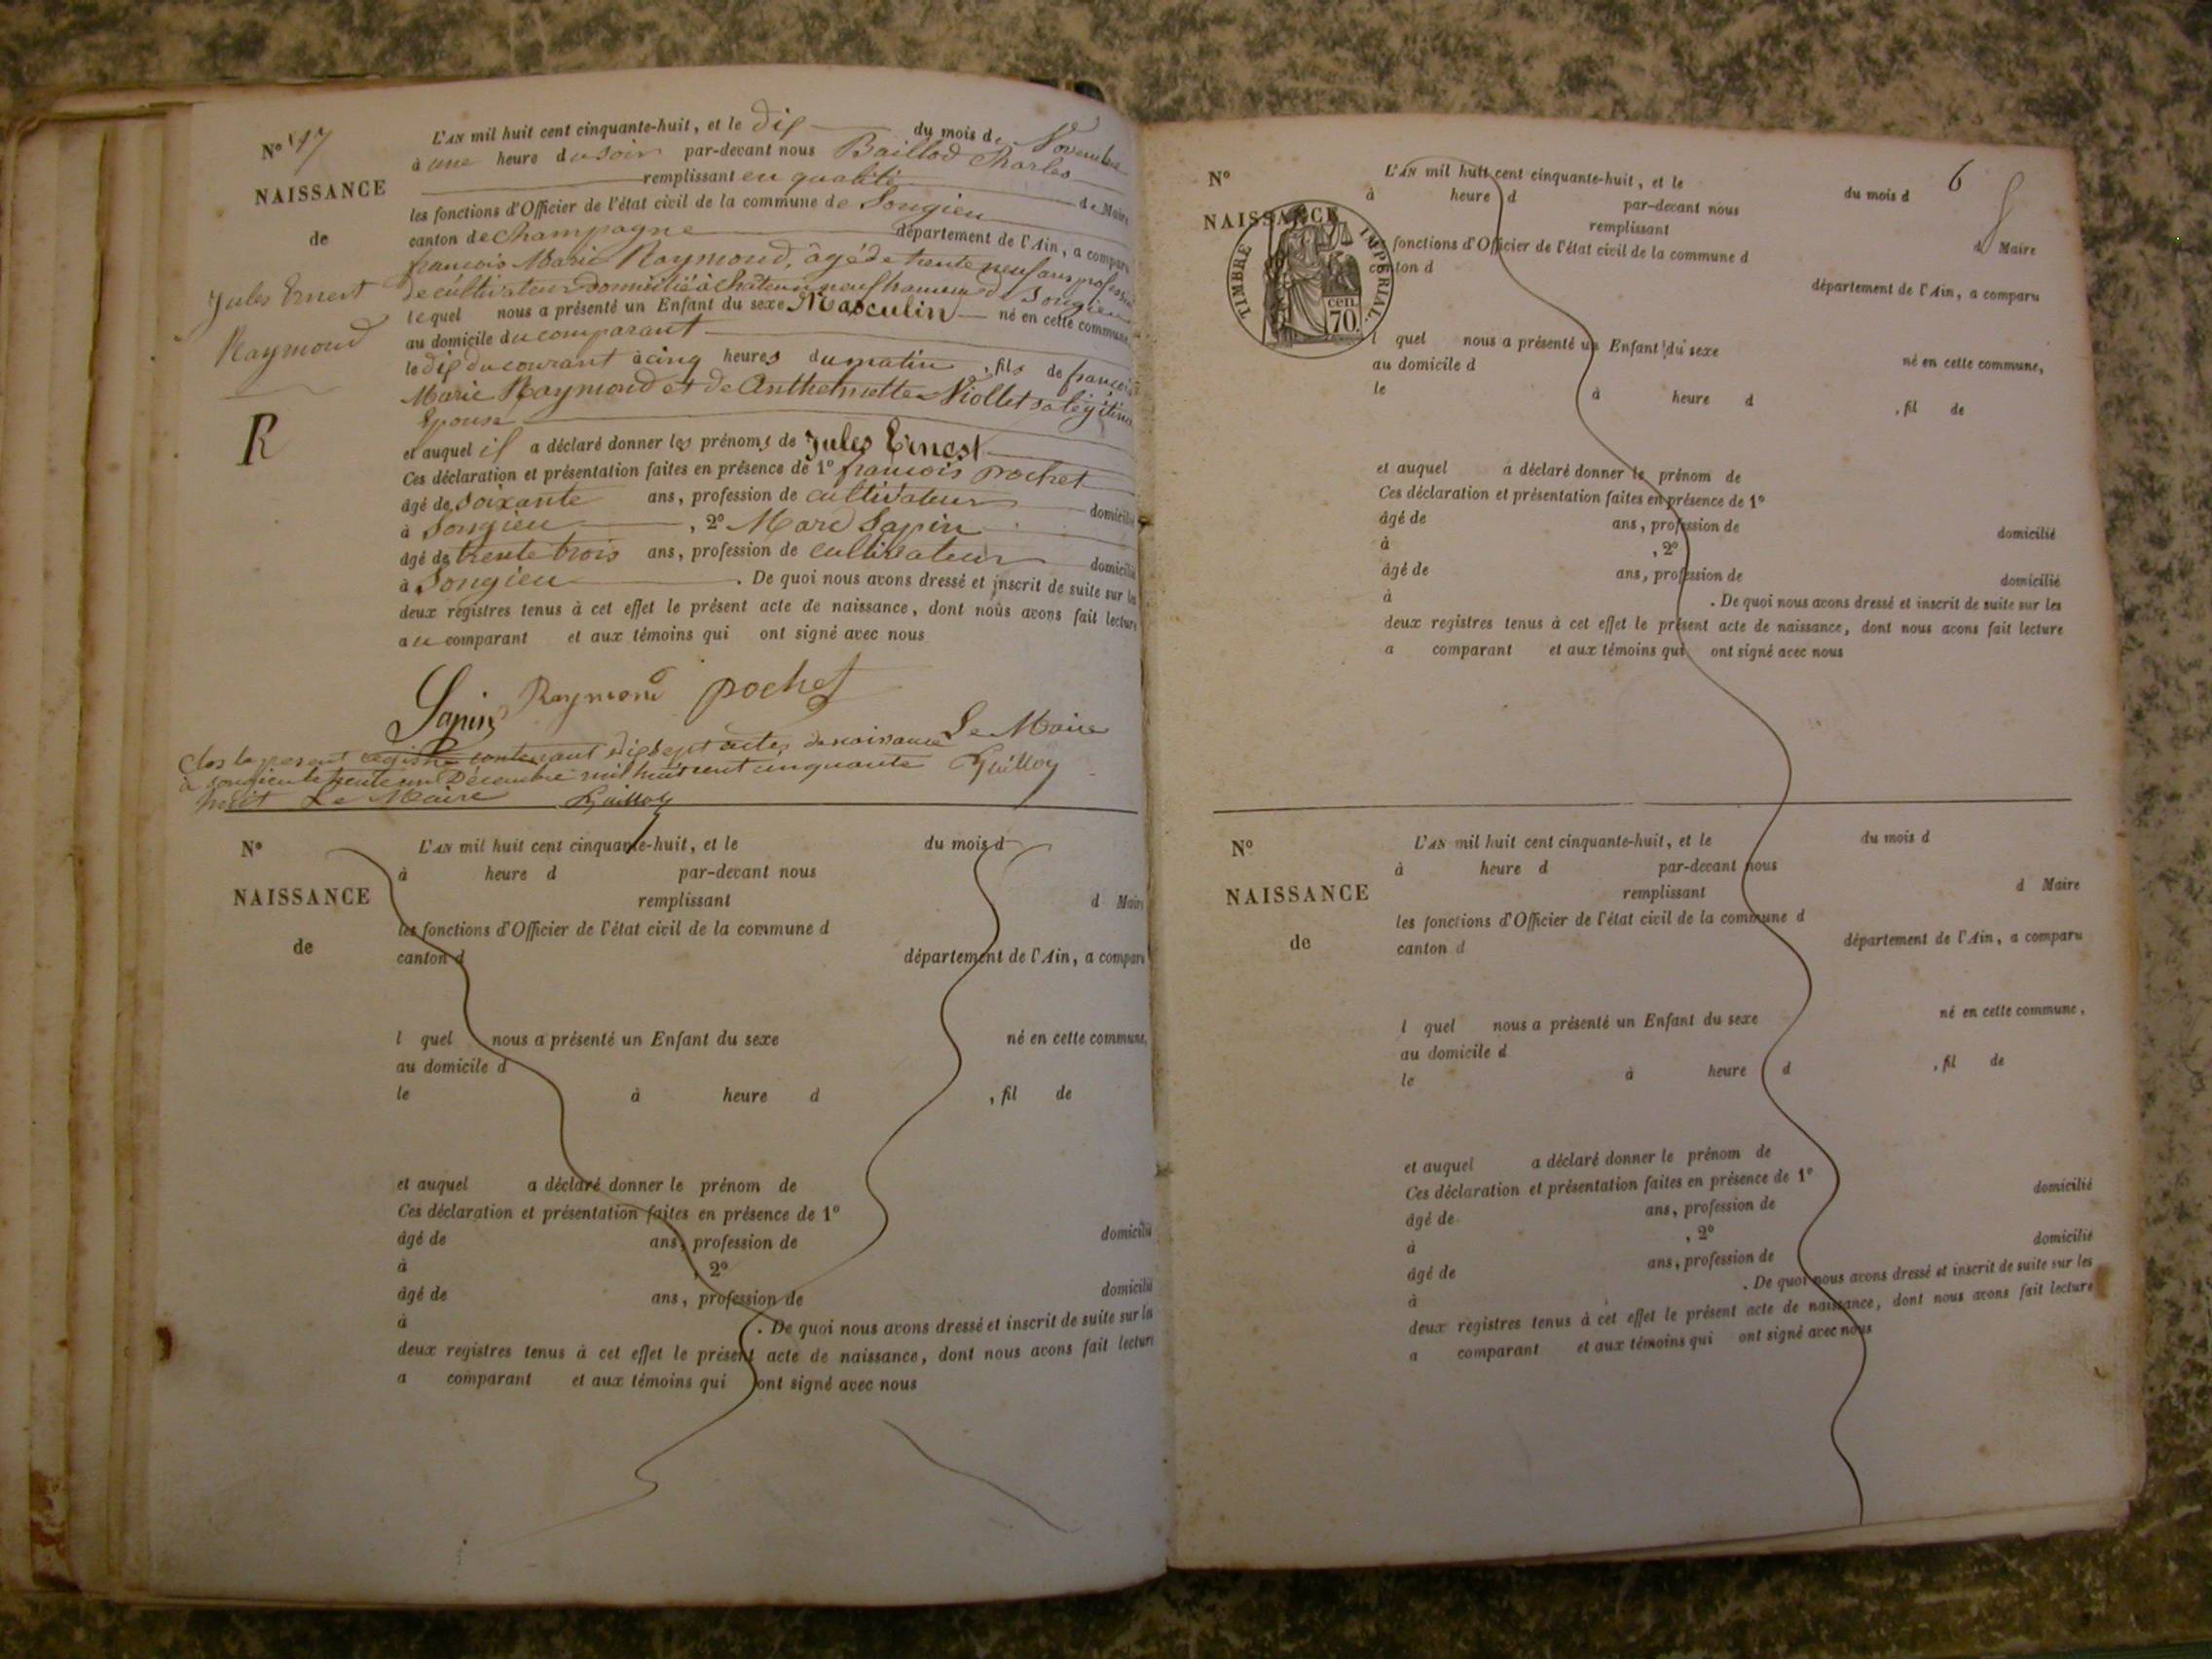 No 17
NAISSANCE
de
Jules Ernest
Raymond
R
L'AN mil huit cent cinquante-huit, et le dix du mois de Novembre
à une heure du soir par-devant nous Charles
remplissant en qualité de Maire
les fonctions d'Officier de l'état civil de la commune de Songieu
canton de champagne département de l'Ain, a comparu
françois Marie Raymond, âgé de trente neuf ans profession
de cultivateur domicilié à Châteauneuf hameau de Songieu
lequel nous a présenté un Enfant du sexe Masculin né en cette commune,
au domicile du comparant
le dix du courant à cinq heures du matin, fils de françois
Marie Raymond et de Anthelmette Viollet sa légitime
Epouse
et auquel il a déclaré donner les prénoms de Jules Ernest
Ces déclaration et présentation faites en présence de 1° françois pochet
âgé de soixante ans, profession de cultivateur domicilié
à Songieu, 2° Marc Sapin
âgé de trente trois ans, profession de cultivateur domicilié
à Songieu. De quoi nous avons dressé et inscrit de suite sur les
deux registres tenus à cet effet le présent acte de naissance, dont nous avons fait lecture
au comparant et aux témoins qui ont signé avec nous
Sapin Raymond pochet
Le Maire
Clos le present registre contenant dix sept actes de naissance
à songieu le trente un Décembre mil huit cent cinquante
huit Le Maire
No
NAISSANCE
de
L'AN mil huit cent cinquante-huit, et le du mois d
à heure d par-devant nous
remplissant d Maire
les fonctions d'Officier de l'état civil de la commune d
canton d département de l'Ain, a comparu
l quel nous a présenté un Enfant du sexe né en cette commune,
au domicile d
le à heure d , fil de
et auquel a déclaré donner le prénom de
Ces déclaration et présentation faites en présence de 1°
âgé de ans, profession de domicilié
à , 2°
âgé de ans, profession de domicilié
à . De quoi nous avons dressé et inscrit de suite sur les
deux registres tenus à cet effet le présent acte de naissance, dont nous avons fait lecture
a comparant et aux témoins qui ont signé avec nous
6
No
NAISSANCE
TIMBRE IMPÉRIAL.
cen.
70.
L'AN mil huit cent cinquante-huit, et le du mois d
à heure d par-devant nous
remplissant d Maire
fonctions d'Officier de l'état civil de la commune d
canton d département de l'Ain, a comparu
l quel nous a présenté un Enfant du sexe né en cette commune,
au domicile d
le à heure d , fil de
et auquel a déclaré donner le prénom de
Ces déclaration et présentation faites en présence de 1°
âgé de ans, profession de domicilié
à , 2°
âgé de ans, profession de domicilié
à . De quoi nous avons dressé et inscrit de suite sur les
deux registres tenus à cet effet le présent acte de naissance, dont nous avons fait lecture
a comparant et aux témoins qui ont signé avec nous
No
NAISSANCE
de
L'AN mil huit cent cinquante-huit, et le du mois d
à heure d par-devant nous
remplissant d Maire
les fonctions d'Officier de l'état civil de la commune d
canton d département de l'Ain, a comparu
l quel nous a présenté un Enfant du sexe né en cette commune,
au domicile d
le à heure d , fil de
et auquel a déclaré donner le prénom de
Ces déclaration et présentation faites en présence de 1°
âgé de ans, profession de domicilié
à , 2°
âgé de ans, profession de domicilié
à . De quoi nous avons dressé et inscrit de suite sur les
deux registres tenus à cet effet le présent acte de naissance, dont nous avons fait lecture
a comparant et aux témoins qui ont signé avec nous